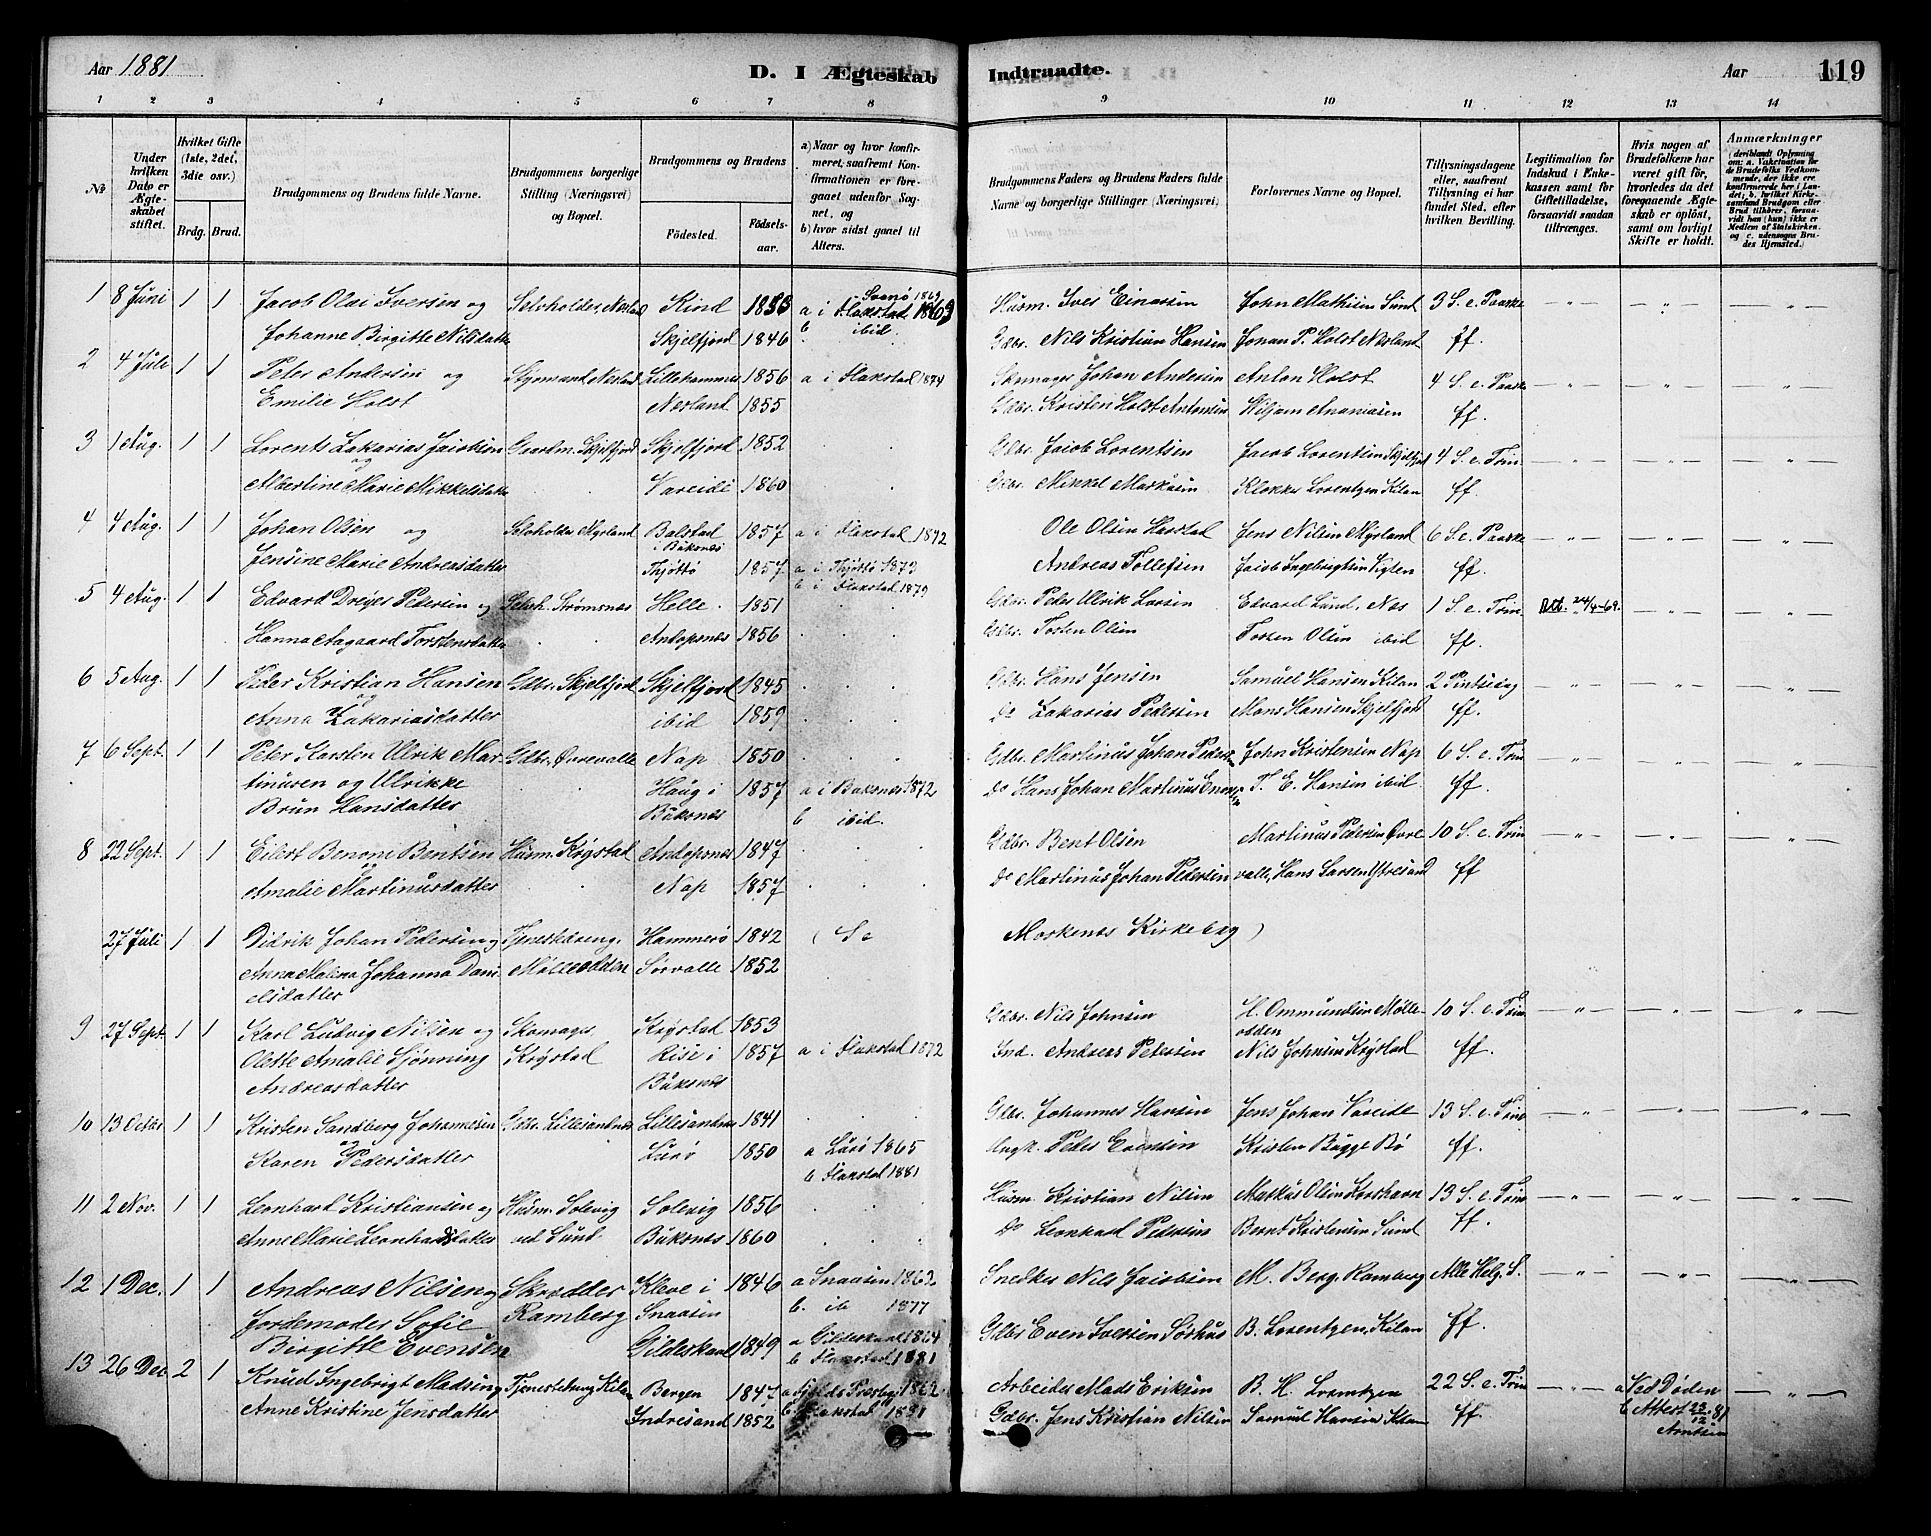 Aar 1881
D. I Ægteskab
Indtraadte.
Aar
119
1 2 3 4 5 6 7 8 9 10 11 12 13 14
No
Under hvilken Dato er Ægteskabet stiftet.
Hvilket Gifte (1ste, 2det, 3die osv.)
Brdg. Brud.
Brudgommens og Brudens fulde Navne.
Brudgommens borgerlige Stilling (Næringsvei) og Bopæl.
Brudgommens og Brudens
Fødested.
Fødselsaar.
a) Naar og hvor konfirmeret, saafremt Konfirmationen er foregaaet udenfor Sognet, og
b) hvor sidst gaaet til Alters.
Brudgommens Faders og Brudens Faders fulde Navne og borgerlige Stillinger (Næringsvei).
Forlovernes Navne og Bopæl.
Tillysningsdagene eller, saafremt Tillysning ei har fundet Sted, efter hvilken Bevilling.
Legitimation for Indskud i Enkekassen samt for Giftetilladelse, forsaavidt saadan tiltrænges.
Hvis nogen af Brudefolkene har været gift før, hvorledes da det foregaaende Ægteskab er opløst, samt om lovligt Skifte er holdt.
Anmærkninger (deriblandt Oplysning om: a. Vakcination for de Brudefolks Vedkommende, der ikke ere konfirmerede her i Landet; b. hvilket Kirkesamfund Brudgom eller Brud tilhører, forsaavidt han (hun) ikke er Medlem af Statskirken, og c. udensogns Brudes Hjemsted.)
1 8 Juni 1 1 Jacob Olai Iversen og Selvholder, Nesland Kind a i Flakstad Husm. Iver Einarsen John Mathisen Sund 3 S. e. Paaske
Johanne Birgitte Nilsdatter Skjelfjord 1846 b ibid Gdbr. Nils Kristian Hansen Johan P. Holst Nesland ff.
2 4 Juli 1 1 Peter Andersen og Styrmand Nesland Lillehammer 1856 a i Flakstad 1874 Skomager Johan Andersen Anton Holst 4 S. e. Paaske
Emilie Holst Nesland 1855 Gdbr. Kristen Holst Antonsen Wiljam Ananiasen ff.
3 1 Aug. 1 1 Lorents Zakarias Jacobsen Gaardm. Skjelfjord Skjelfjord 1852 Gdbr. Jacob Lorentsen Jacob Lorentsen Skjelfjord 4 S. e. Trin
og
Albertine Marie Mikkelsdatter Vareide 1860 Gdbr. Mikkel Markusen Klokker Lorentzen Kilan ff.
4 4 Aug. 1 1 Johan Olsen og Selvholder Myrland Balstad i Buksnes 1857 a i Flakstad Ole Olsen Jens Nilsen Myrland 6 S. e. Paaske
Jensine Marie Andreasdatter Thjøttø 1857 a i Thjøttø 1873 b i Flakstad 1879 Andreas Tollefsen Jacob Ingebrigtsen Vigten ff.
5 4 Aug. 1 1 Edvard Dreyer Pedersen og Selvh. Strømsnes Helle 1851 Gdbr. Peder Ulrik Larsen Edvard Lund, Nes 1 S. e. Trin Att. 24/4-69.
Hanna Aagaard Torstensdatter Andopsnes 1856 Gdbr. Tosten Olsen Tosten Olsen ibid ff.
6 5 Aug. 1 1 Peder Kristian Hansen Gdbr. Skjelfjord Skjelfjord 1845 Gdbr. Hans Jensen Samuel Hansen Kilan 2 Pintsedag
og
Anna Zakariasdatter ibid 1859 Do Zakarias Pedersen Mons Hansen Skjelfjord ff.
7 6 Sept. 1 1 Peter Karsten Ulrik Mar- Gdbr. Øvrevalle Nap 1850 Gdbr. Martinus Johan Pedersen John Kristensen Nap 6 S. e. Trin
tinusen og Ulrikke Haug i 1857 a i Buksnes 1872 Do Hans Johan Martinus T. E. Hansen ibid ff.
Brun Hansdatter Buksnes b ibid.
8 22 Sept. 1 1 Eilert Benoni Bentsen Husm. Krystad Andopsnes 1847 Gdbr. Bent Olsen Martinus Pedersen Øvre- 10 S. e. Trin
og
Amalie Martinusdatter Nap 1857 Do Martinus Johan Pedersen valle, Hans Larsen Ytresand ff
27 Juli 1 1 Didrik Johan Pedersen og Tjenestdreng. Hammerø 1842 (Se Moskenes Kirkebog)
Anna Malena Johanna Dani- Mølleodden Sørvalle 1852
elsdatter
9 27 Sept. 1 1 Karl Ludvig Nilsen og Skomager Krystad 1853 Gdbr. Nils Johnsen H. Ommundsen Mølleodden 10 S. e. Trin
Olette Amalie Sjønning Krystad Rise i 1857 a i Flakstad 1872 Ind. Andreas Petersen Nils Johnsen Krystad ff.
Andreasdatter Buksnes
10 13 Octbr 1 1 Kristen Sandberg Johannesen Gdbr. Lillesandnes Lillesandnes 1841 Gdbr. Johannes Hansen Jens Johan Vareide 13 S. e. Trin
og
Karen Pedersdatter Lurø 1850 a Lurø 1865 b Flakstad 1881 Peder Evensen Kristen Bugge Bø ff.
11 2 Nov. 1 1 Leonhard Kristiansen og Husm. Solevig Solevig 1856 Husm. Kristian Nilsen Markus Olsen Korshavn 13 S. e. Trin
Anne Marie Leonhardsdatter ved Sund Buksnes 1860 Do Leonhard Pedersen Bernt Kristensen Sund ff.
12 1 Dec. 1 1 Andreas Nilsen og Skrædder Kleve i 1846 a Snaasen 1862 Snedker Nils Jacobsen M. Berg, Ramberg Alle Helg. S.
Jordemoder Sofie Ramberg Snaasen b. ib 1877
Birgitte Evensen Gildeskaal 1849 a Gildeskaal 1864 b Flakstad 1881 Gdbr Even Iversen Sørhus B. Lorentzen, Kilan ff.
13 26 Dec 2 1 Knud Ingebrigt Madsen og Tjenestedreng Kilan Bergen 1847 1862 Arbeider Mads Eriksen B. H. Lorentzen 22 S. e. Trin a Ved Døden
Anne Kristine Jensdatter Indresand 1852 b Flakstad 1881 Gdbr. Jens Kristian Nilsen Samuel Hansen Kilan ff. Attest 23/12 81